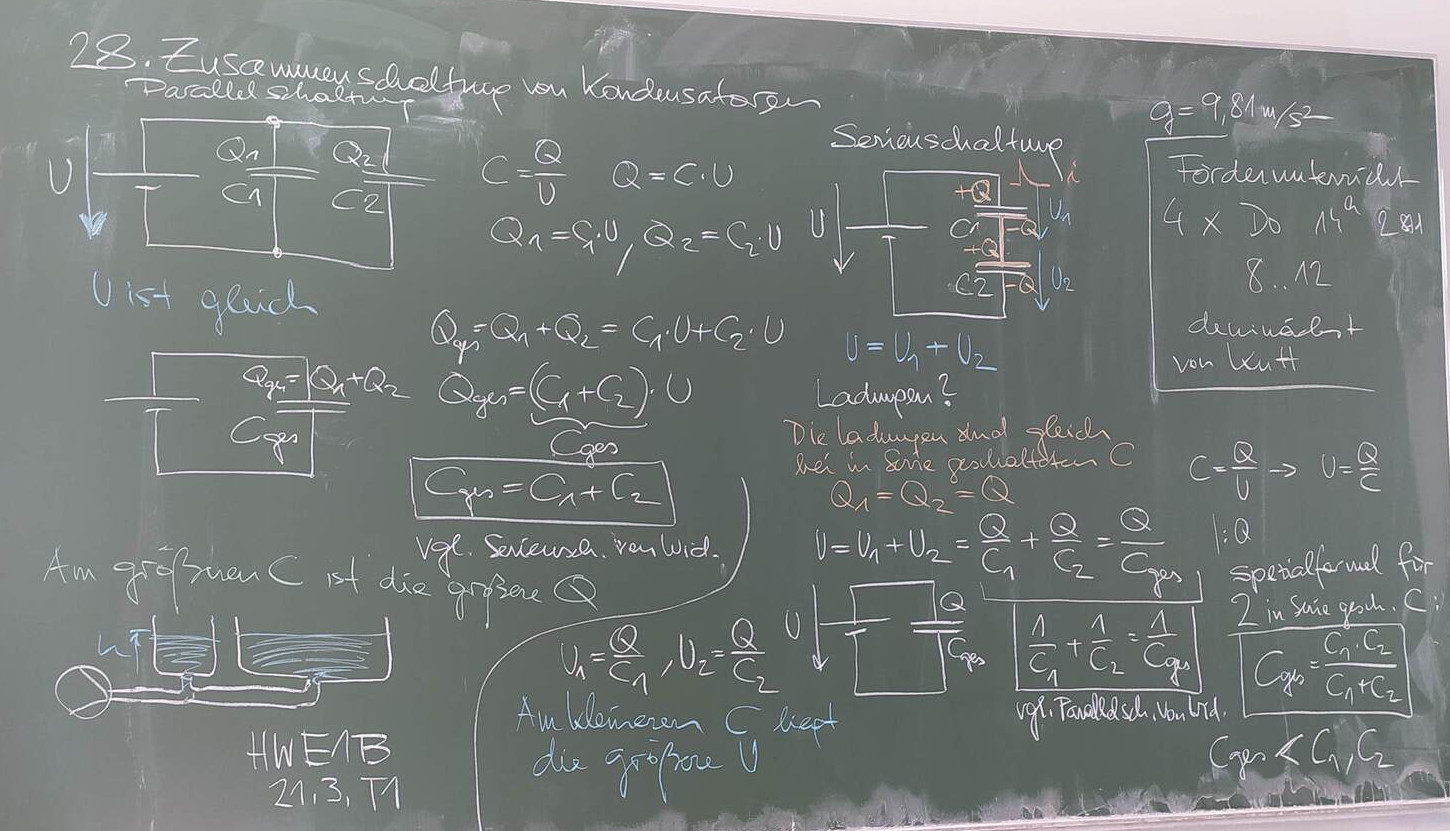 28. Zusammenschaltung von Kondensatoren
Parallelschaltung
U
Q1
C1
Q2
C2
U ist gleich
C = Q/U Q = C·U
Q1 = C1·U, Q2 = C2·U
Qges = Q1 + Q2 = C1·U + C2·U
Qges = (C1 + C2)·U
Cges
Qges = Q1 + Q2
Cges
Cges = C1 + C2
vgl. Seriensch. von Wid.
Am größeren C ist die größere Q
h
HWE1B
21.3. T1
Serienschaltung
U
i
+Q
C1
-Q
U1
+Q
C2
-Q
U2
U = U1 + U2
Ladungen?
Die Ladungen sind gleich
bei in Serie geschalteten C
Q1 = Q2 = Q
U = U1 + U2 = Q/C1 + Q/C2 = Q/Cges
|:Q
U
Q
Cges
1/C1 + 1/C2 = 1/Cges
vgl. Parallelsch. von Wid.
U1 = Q/C1, U2 = Q/C2
Am kleineren C liegt
die größere U
g = 9,81 m/s²
Förderunterricht
4 x Do 14h
8..12
demnächst
von
C = Q/U → U = Q/C
Spezialformel für
2 in Serie gesch. C:
Cges = C1·C2/C1+C2
Cges < C1, C2